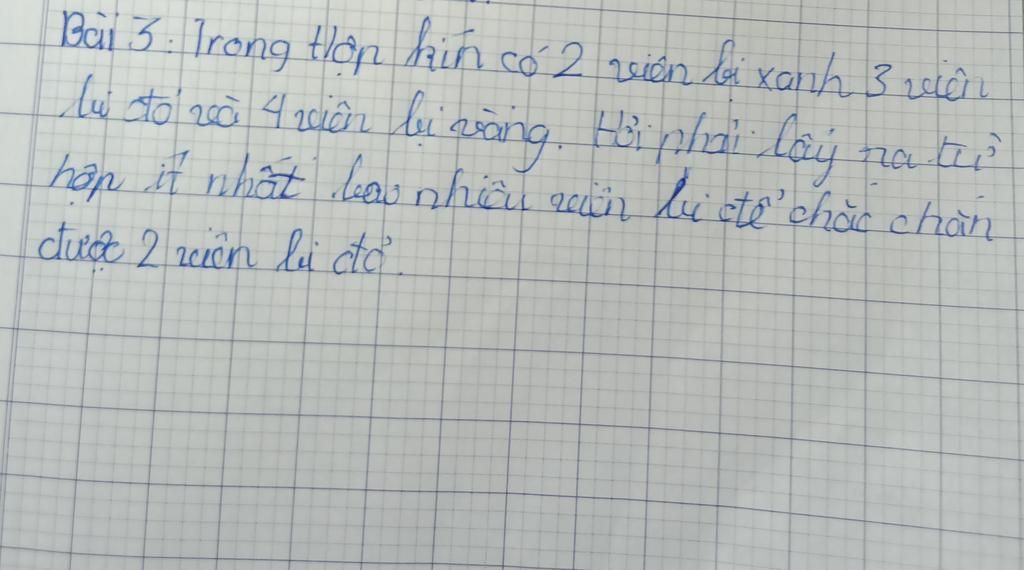 Bài 3: Trong hộp kín có 2 viên bi xanh 3 viên
bi đỏ và 4 viên bi vàng. Hỏi phải lấy ra từ
hộp ít nhất bao nhiêu viên bi để chắc chắn
được 2 viên bi đỏ.